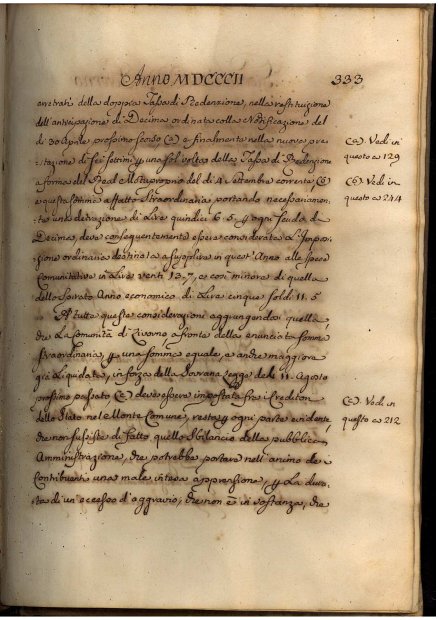 Anno MDCCCII
333
arretrati della doppia Tassa di Redenzione, nella restituzione
dell'anticipazione di Decima ordinata colla Notificazione del
dì 30 Aprile prossimo scorso (a) e finalmente nella nuova pre=
=stazione di sei settimi p una sol volta della Tassa di Redenzione
a forma del Real Motuproprio del dì 4 Settembre corrente (b)
e questa somma affatto straordinaria portando necessariamen=
te una elevazione di Lire quindici 6. 5. p ogni scudo di
Decima, deve conseguentemente essere considerata L'Impo=
sizione ordinaria destinata a supplire in quest'Anno alle spese
Comunitative in Lire venti 13. 7, e così minore di quella
dello spirato Anno economico di Lire cinque soldi 11. 5
A tutte queste considerazioni aggungendosi quella,
che La Comunità di Livorno, a fronte della enunciata somma
straordinaria, p una somma eguale, e anche maggiore
già Liquidata, in forza della Sovrana Legge del 11. Agosto
prossimo passato (c) deve essere impostata fra i Creditori
dello Stato nel Monte Comune, resta p ogni parte evidente,
che non sussiste di fatto quello sbilancio della pubblica
Amministrazione, che potrebbe portare nell'animo de
Contribuenti una male intesa apprensione, p La
ta di un eccesso d'aggravio, che non è in sostanza, che
(a). Vedi in
questo a 129
(b). Vedi in
questo a 214
(c). Vedi in
questo a 212